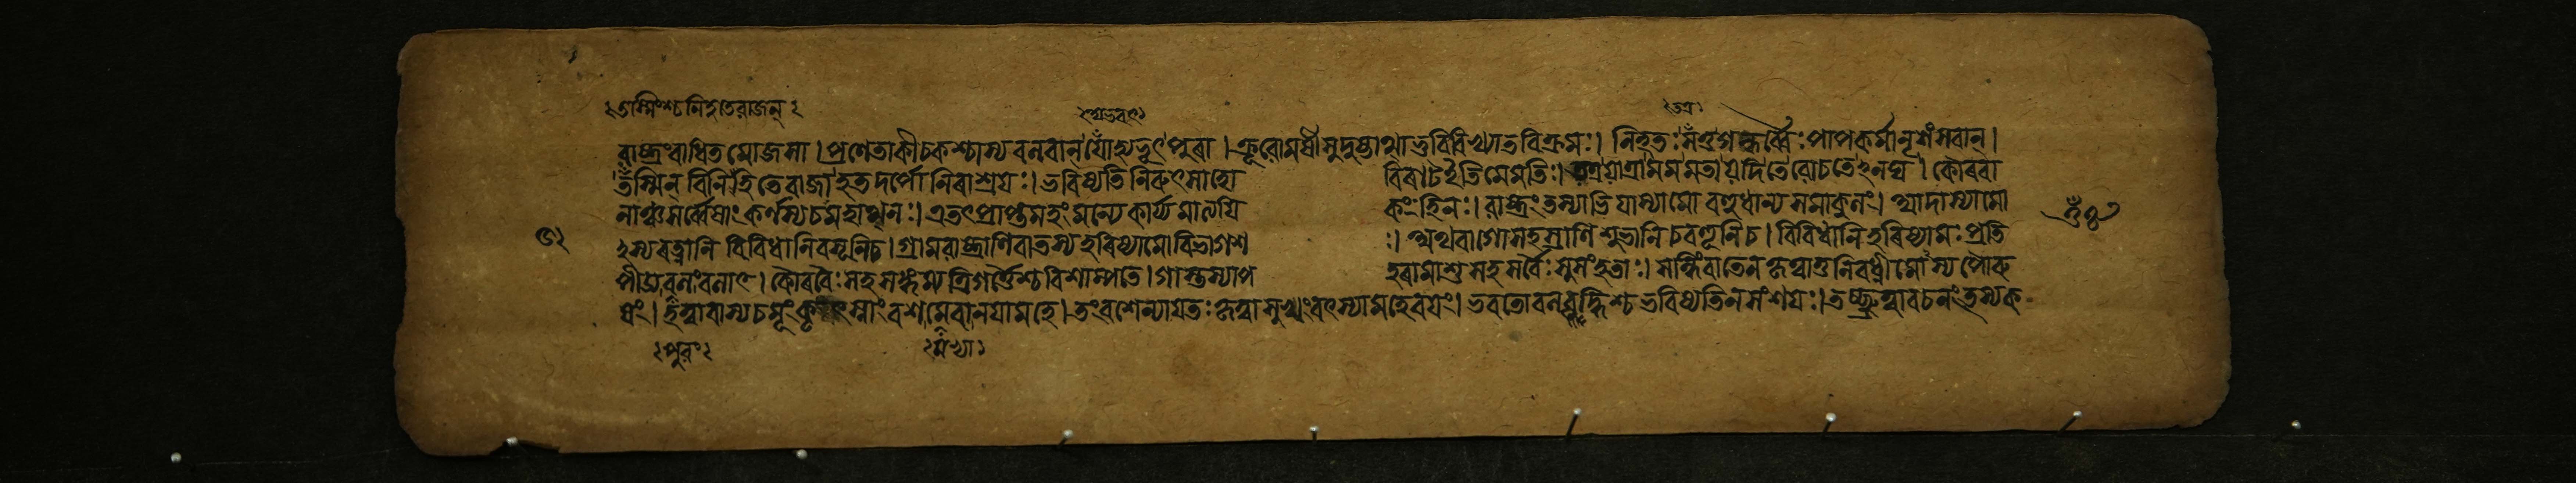 তস্মিংশ্চনিহতেরাজন্
থাভবৎ
তত্র
রাষ্ট্রংবাধিতমোজসা।প্রণেতাকীচকশ্চাস্যবলবান্যোঁহ্যভূৎপুৰা।ক্রূরোমর্ষীসুদুষ্টাত্মাভুবিবিখ্যাতবিক্রমঃ।নিহতঃসঁতুগন্ধর্ব্বৈঃপাপকর্মানৃশংসবান্।
তস্মিন্বিনিহতেৰাজাহতদর্পোনিৰাশ্রয়ঃ।ভবিষ্যতিনিৰুৎসাহো বিৰাটইতিমেমতিঃ।তত্রযাত্রামমমতাযদিতেৰোচতেঽনঘ।কৌৰবা
নাঞ্চসর্ব্বেষাংকর্ণস্যচমহাত্মনঃ।এতৎপ্রাপ্তমহংমন্যেকার্য্যমাত্যযি কংহিনঃ।ৰাষ্ট্রংতস্যাভিযাস্যামোবহুধান্যসমাকুলং।আদাস্যামো
ঽস্যৰত্নানিবিবিধানিবসূনিচ।গ্রামৰাষ্ট্রাণিবাতস্যহৰিষ্যামোবিভাগশ ঃ।অথবাগোসহস্রাণিশুভানিচবহূনিচ।বিবিধানিহৰিষ্যামঃপ্রতি
পীড্যবলংবলাৎ।কৌৰবৈঃসহসঙ্গম্যত্রিগর্ত্তৈশ্চবিশাম্পতে।গাস্তস্যাপ হৰামাশুসহসর্বৈঃসুসংহতাঃ।সন্ধিংবাতেনকৃত্বাতুনিবৎস্যামোস্যপৌৰু
ষং।হত্বাবাস্যচমূংকৃৎস্নাংবশমেবানযামহে।তংবশেন্যাযতঃকৃত্বাসুখংবৎস্যামহেবযং।ভবতোবলবৃদ্ধিশ্চভবিষ্যতিনসংশযঃ।তচ্ছ্রুত্বাবচনংতস্যক
পুরং